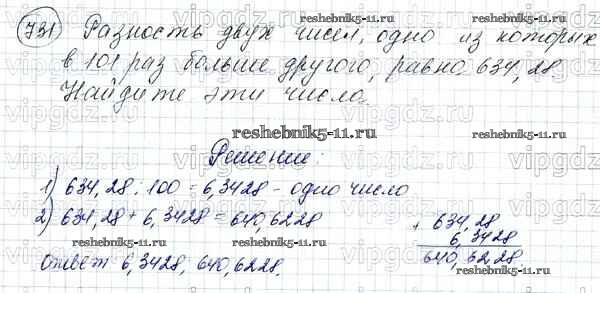 731 Разность двух чисел, одно из которых
в 101 раз больше другого, равно 634,28.
Найдите эти числа.
Решение:
1) 634,28 : 100 = 6,3428 - одно число
2) 634,28 + 6,3428 = 640,6228
+ 634,28
6,3428
640,6228.
Ответ 6,3428, 640,6228.
reshebnik5-11.ru
reshebnik5-11.ru
reshebnik5-11.ru
reshebnik5-11.ru
reshebnik5-11.ru
reshebnik5-11.ru